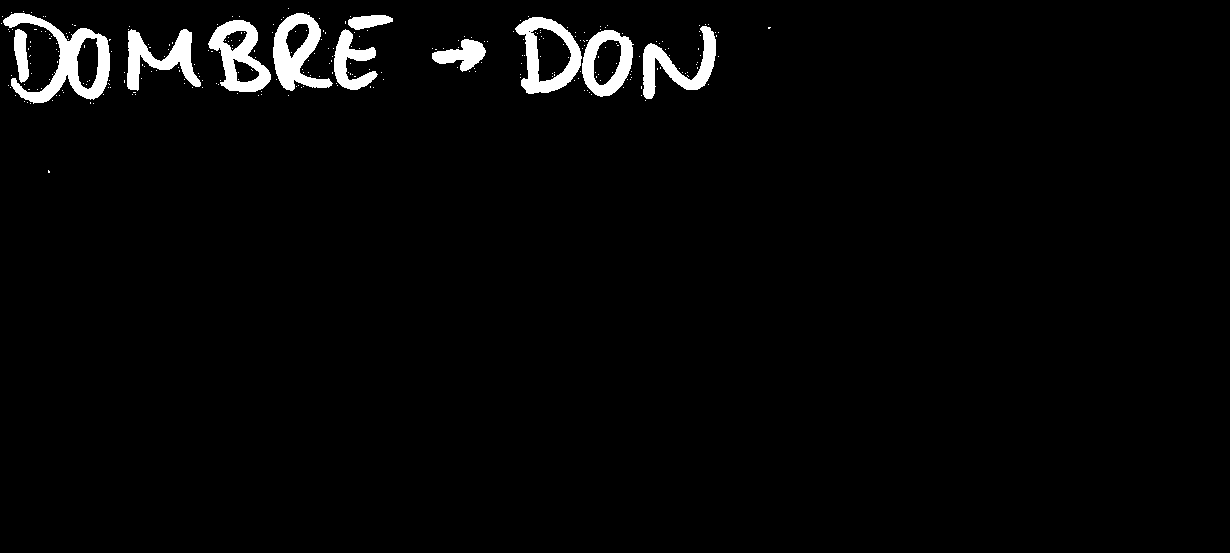 DOMBRE → DON